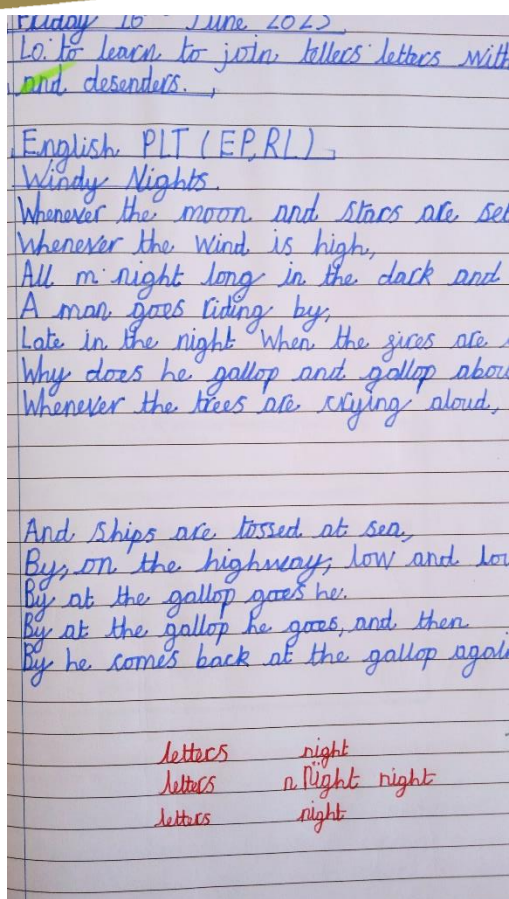 Friday 16 June 2023
Lo: to learn to join tellers letters with
and desenders.
English PLT (EP, RL)
Windy Nights.
Whenever the moon and stars are set
Whenever the wind is high,
All m night long in the dark and
A man goes riding by,
Late in the night when the gires are
Why does he gallop and gallop abou
Whenever the trees are crying aloud,
And ships are tossed at sea,
By, on the highway, low and lou
By at the gallop goes he.
By at the gallop he goes, and then
By he comes back at the gallop again
letters night
letters n Night night
letters night